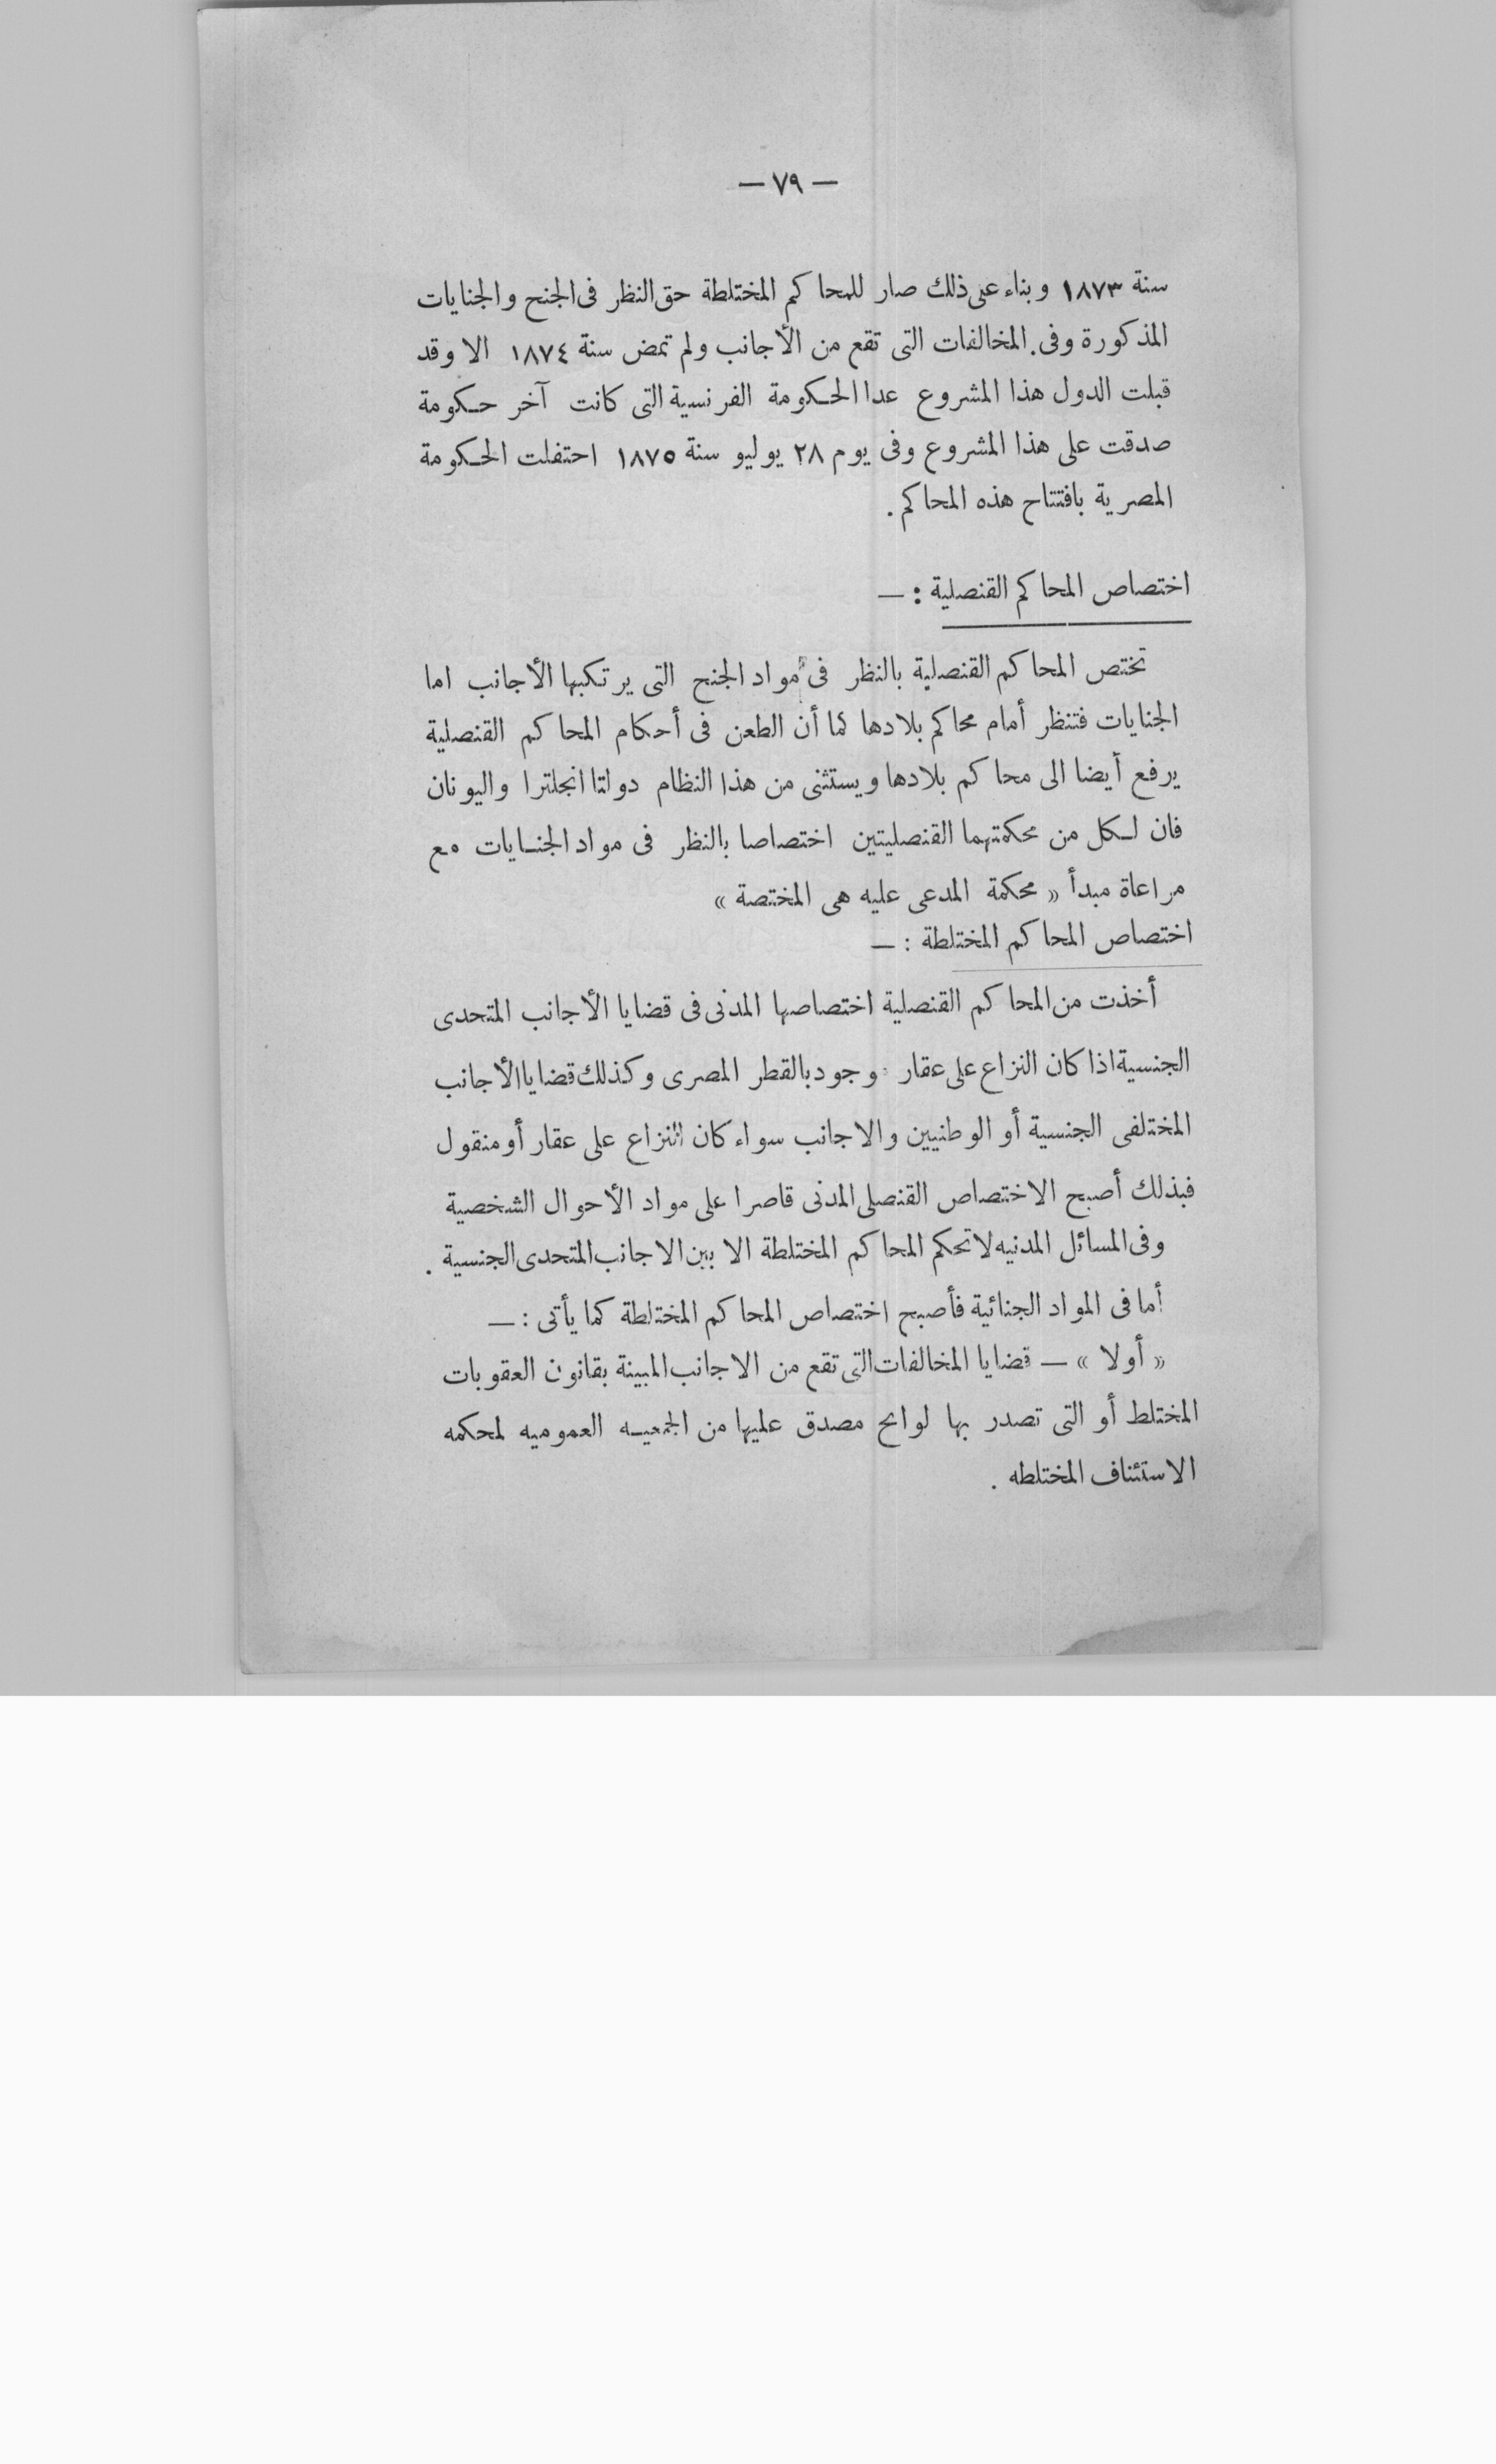 — ٧٩ —
سنة ١٨٧٣ وبناء على ذلك صار للمحاكم المختلطة حق النظر فى الجنح والجنايات
المذكورة وفى المخالفات التى تقع من الأجانب ولم تمض سنة ١٨٧٤ الا وقد
قبلت الدول هذا المشروع عدا الحكومة الفرنسية التى كانت آخر حكومة
صدقت على هذا المشروع وفى يوم ٢٨ يوليو سنة ١٨٧٥ احتفلت الحكومة
المصرية بافتتاح هذه المحاكم .
اختصاص المحاكم القنصلية : —
تختص المحاكم القنصلية بالنظر فى مواد الجنح التى يرتكبها الأجانب اما
الجنايات فتنظر أمام محاكم بلادها كما أن الطعن فى أحكام المحاكم القنصلية
يرفع أيضا الى محاكم بلادها ويستثنى من هذا النظام دولتا انجلترا واليونان
فان لكل من محكمتهما القنصليتين اختصاصا بالنظر فى مواد الجنايات مع
مراعاة مبدأ « محكمة المدعى عليه هى المختصة »
اختصاص المحاكم المختلطة : —
أخذت من المحاكم القنصلية اختصاصها المدنى فى قضايا الأجانب المتحدى
الجنسية اذا كان النزاع على عقار موجود بالقطر المصرى وكذلك قضايا الأجانب
المختلفى الجنسية أو الوطنيين والاجانب سواء كان النزاع على عقار أو منقول
فبذلك أصبح الاختصاص القنصلى المدنى قاصرا على مواد الأحوال الشخصية
وفى المسائل المدنيه لا تحكم المحاكم المختلطة الا بين الاجانب المتحدى الجنسية .
أما فى المواد الجنائية فأصبح اختصاص المحاكم المختلطة كما يأتى : —
« أولا » — قضايا المخالفات التى تقع من الاجانب المبينة بقانون العقوبات
المختلط أو التى تصدر بها لوائح مصدق عليها من الجمعيه العموميه لمحكمه
الاستئناف المختلطه .